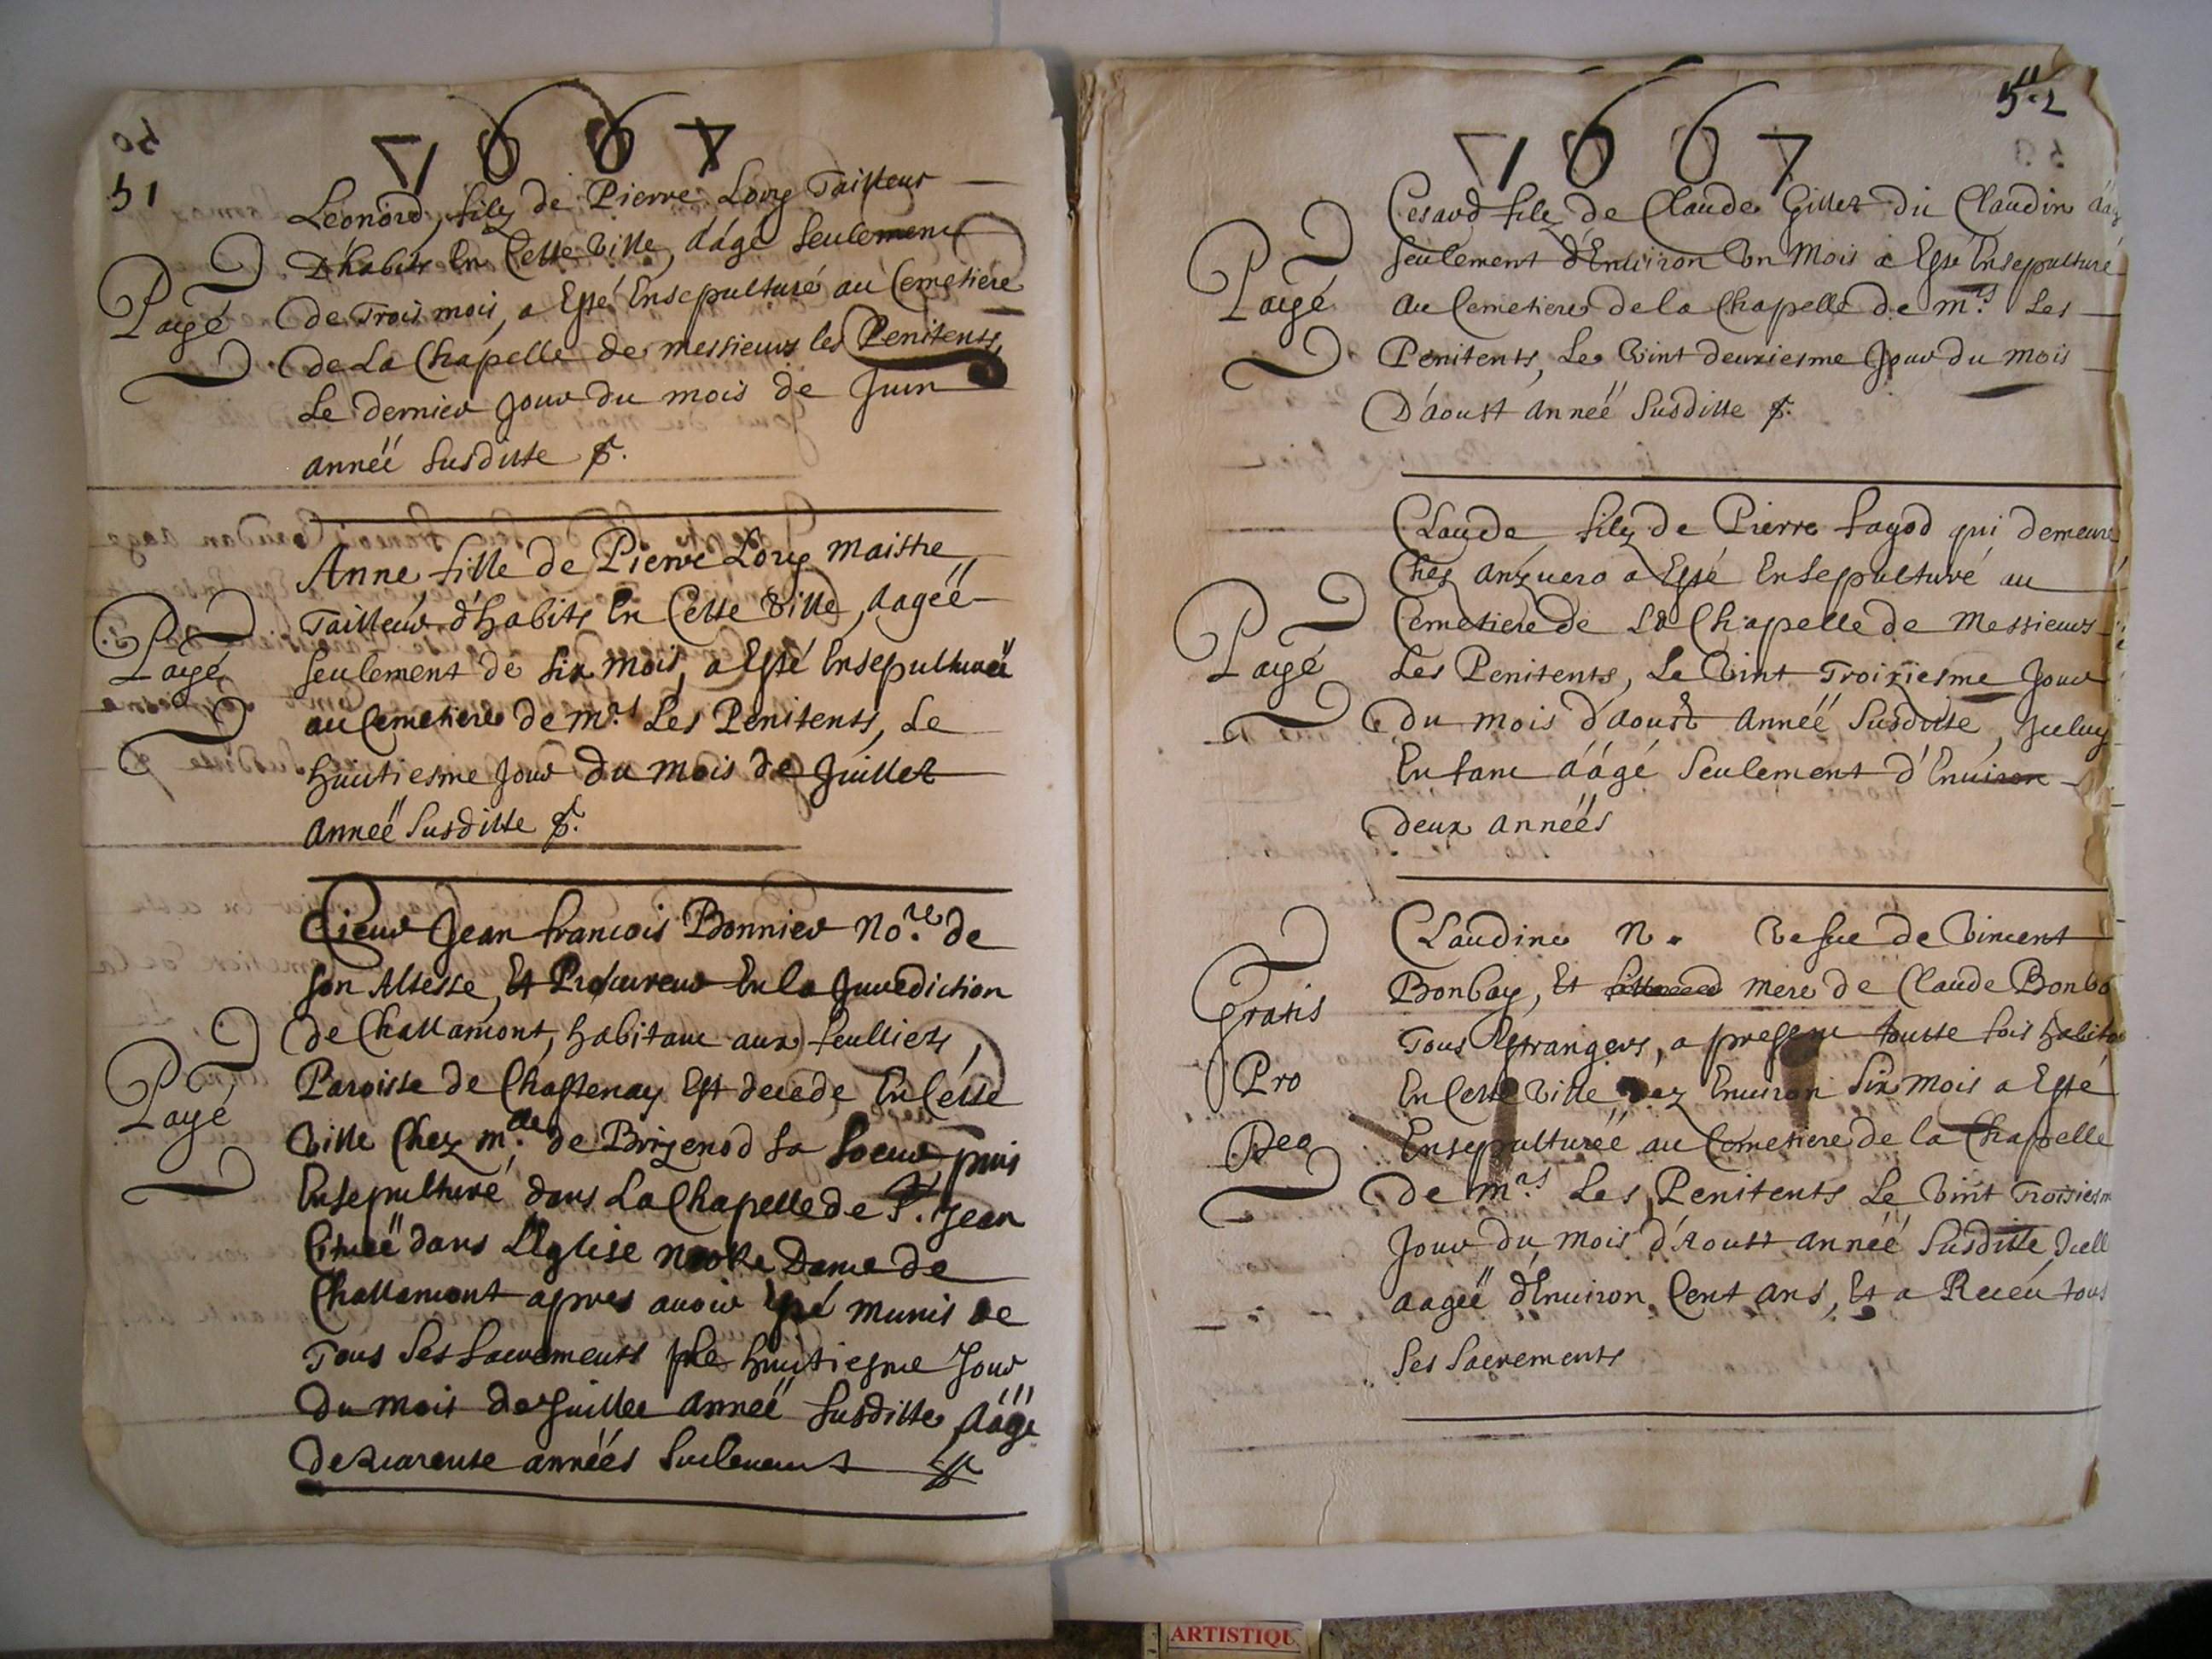 50
51
1667
Leonord, filz de Pierre Lory Tailleur
D'habits En Cette Ville, áágé seulement
de Trois mois, a Esté Ensepulturé au Cemetiere
de La Chapelle de messieurs les Penitents,
Le dernier Jour du mois de Juin
année susditte
Payé
Anne, fille de Pierre Lory maistre
Tailleur d'habits En Cette Ville, aagéé
seulement de six mois, a Esté Ensepulturéé
au Cemetiere de mrs Les Penitents, Le
huitiesme Jour du mois de Juillet
année susditte
Payé
Sieur Jean francois Bonnier Nore de
son Altesse, Et Procureur En la Jurediction
de Challamont, habitant aux feulliets,
Paroisse de Chastenay Est decede En Cette
Ville Chez mde de Brizenod sa soeur, puis
Ensepulturé dans La Chapelle de S. Jean
Cituéé dans L'Eglise Nostre Dame de
Challamont apres auoir Esté munis de
Tous ses sacrements le huitiesme Jour
du mois de Juillet année susditte, áágé
de quarente années seulement
Payé
52
1667
Cesard filz de Claude Gillet dit Claudin
seulement d'Enuiron Vn Mois a Esté Ensepulturé
au Cemetiere de la Chapelle de mrs Les
Penitents, Le Vint deuxiesme Jour du mois
D'aoust année susditte
Payé
Claude filz de Pierre fagod qui demeure
Chez a Esté Ensepulturé au
Cemetiere de La Chapelle de Messieurs
Les Penitents, Le Vint Troixiesme Jour
du mois d'aoust année susditte, Iceluy
Enfant áágé seulement d'Enuiron
deux années
Payé
Claudine N. Vefue de Vincent
Bonbay, Et mere de Claude
Tous Estrangers, a present toutte fois
En Cette Ville dez Enuiron six mois a Esté
Ensepulturéé au Cemetiere de la Chapelle
de mrs Les Penitents Le Vint
Jour du mois d'Aoust année susditte,
aagéé d'Enuiron Cent ans, Et a Receu tous
ses sacrements
Gratis
Pro
Deo
ARTISTIQU